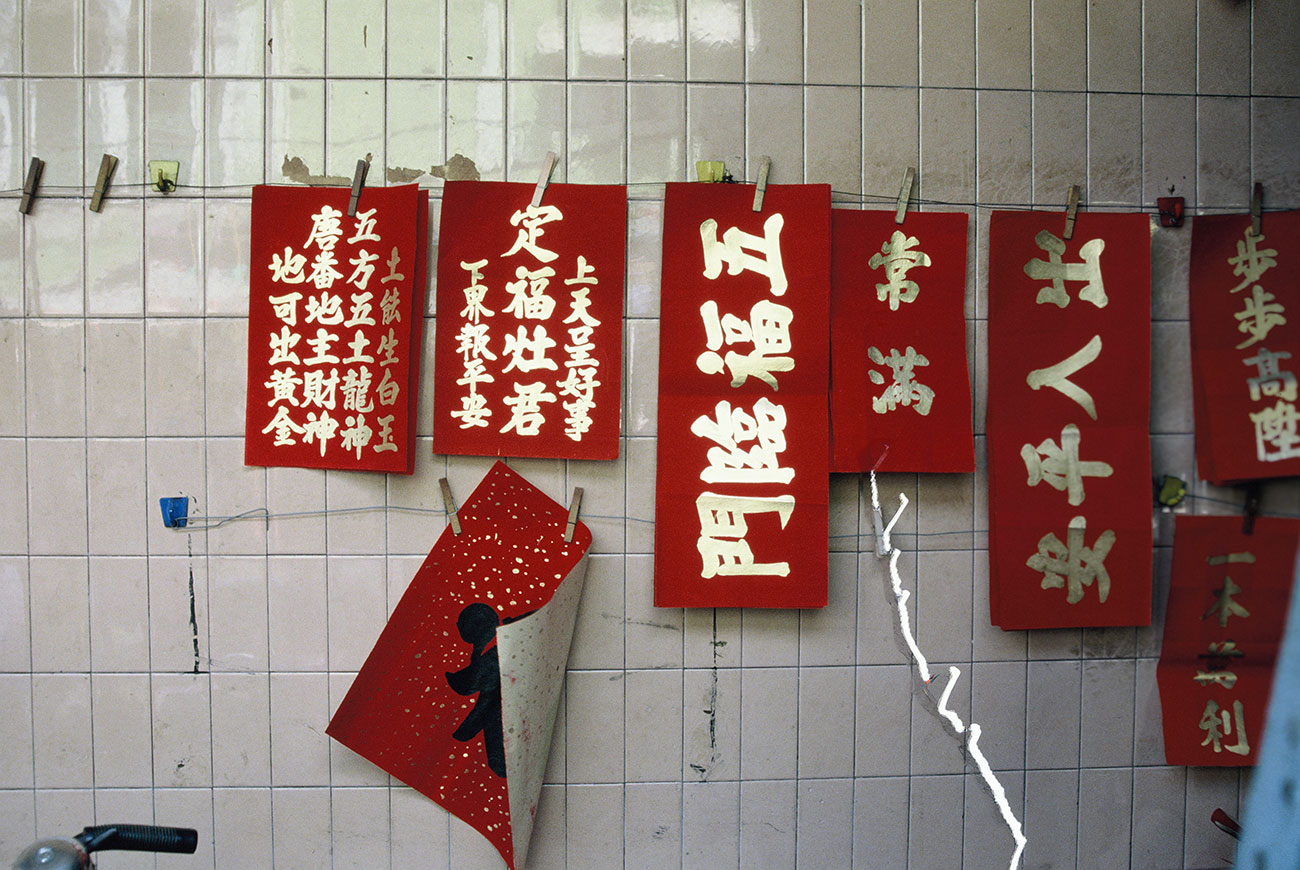 土能生白玉
五方五土龍神
唐番地主財神
地可出黃金
上天呈好事
定福灶君
下東報平安
五福臨門
常滿
出入平安
步步高陞
一本萬利